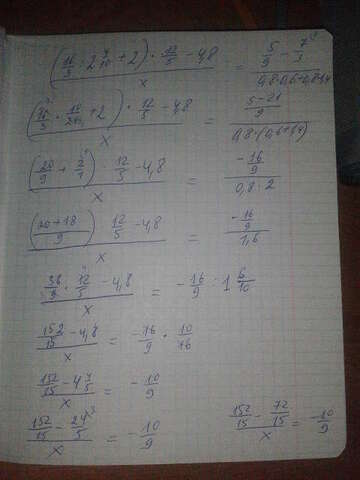 ((16/3 : 2 7/10 + 2) · 12/5 - 4,8)/x = (5/9 - 7/3)/(0,8·0,6+0,8·1,4)
((16/3 · 10/24 + 2) · 12/5 - 4,8)/x = ((5-21)/9)/(0,8·(0,6+1,4))
((20/9 + 2/1) · 12/5 - 4,8)/x = (-16/9)/(0,8·2)
(((20+18)/9) 12/5 - 4,8)/x = (-16/9)/1,6
(38/9 · 12/5 - 4,8)/x = -16/9 : 1 6/10
(152/15 - 4,8)/x = -16/9 · 10/16
(152/15 - 4 4/5)/x = -10/9
(152/15 - 24/5)/x = -10/9
(152/15 - 72/15)/x = -10/9